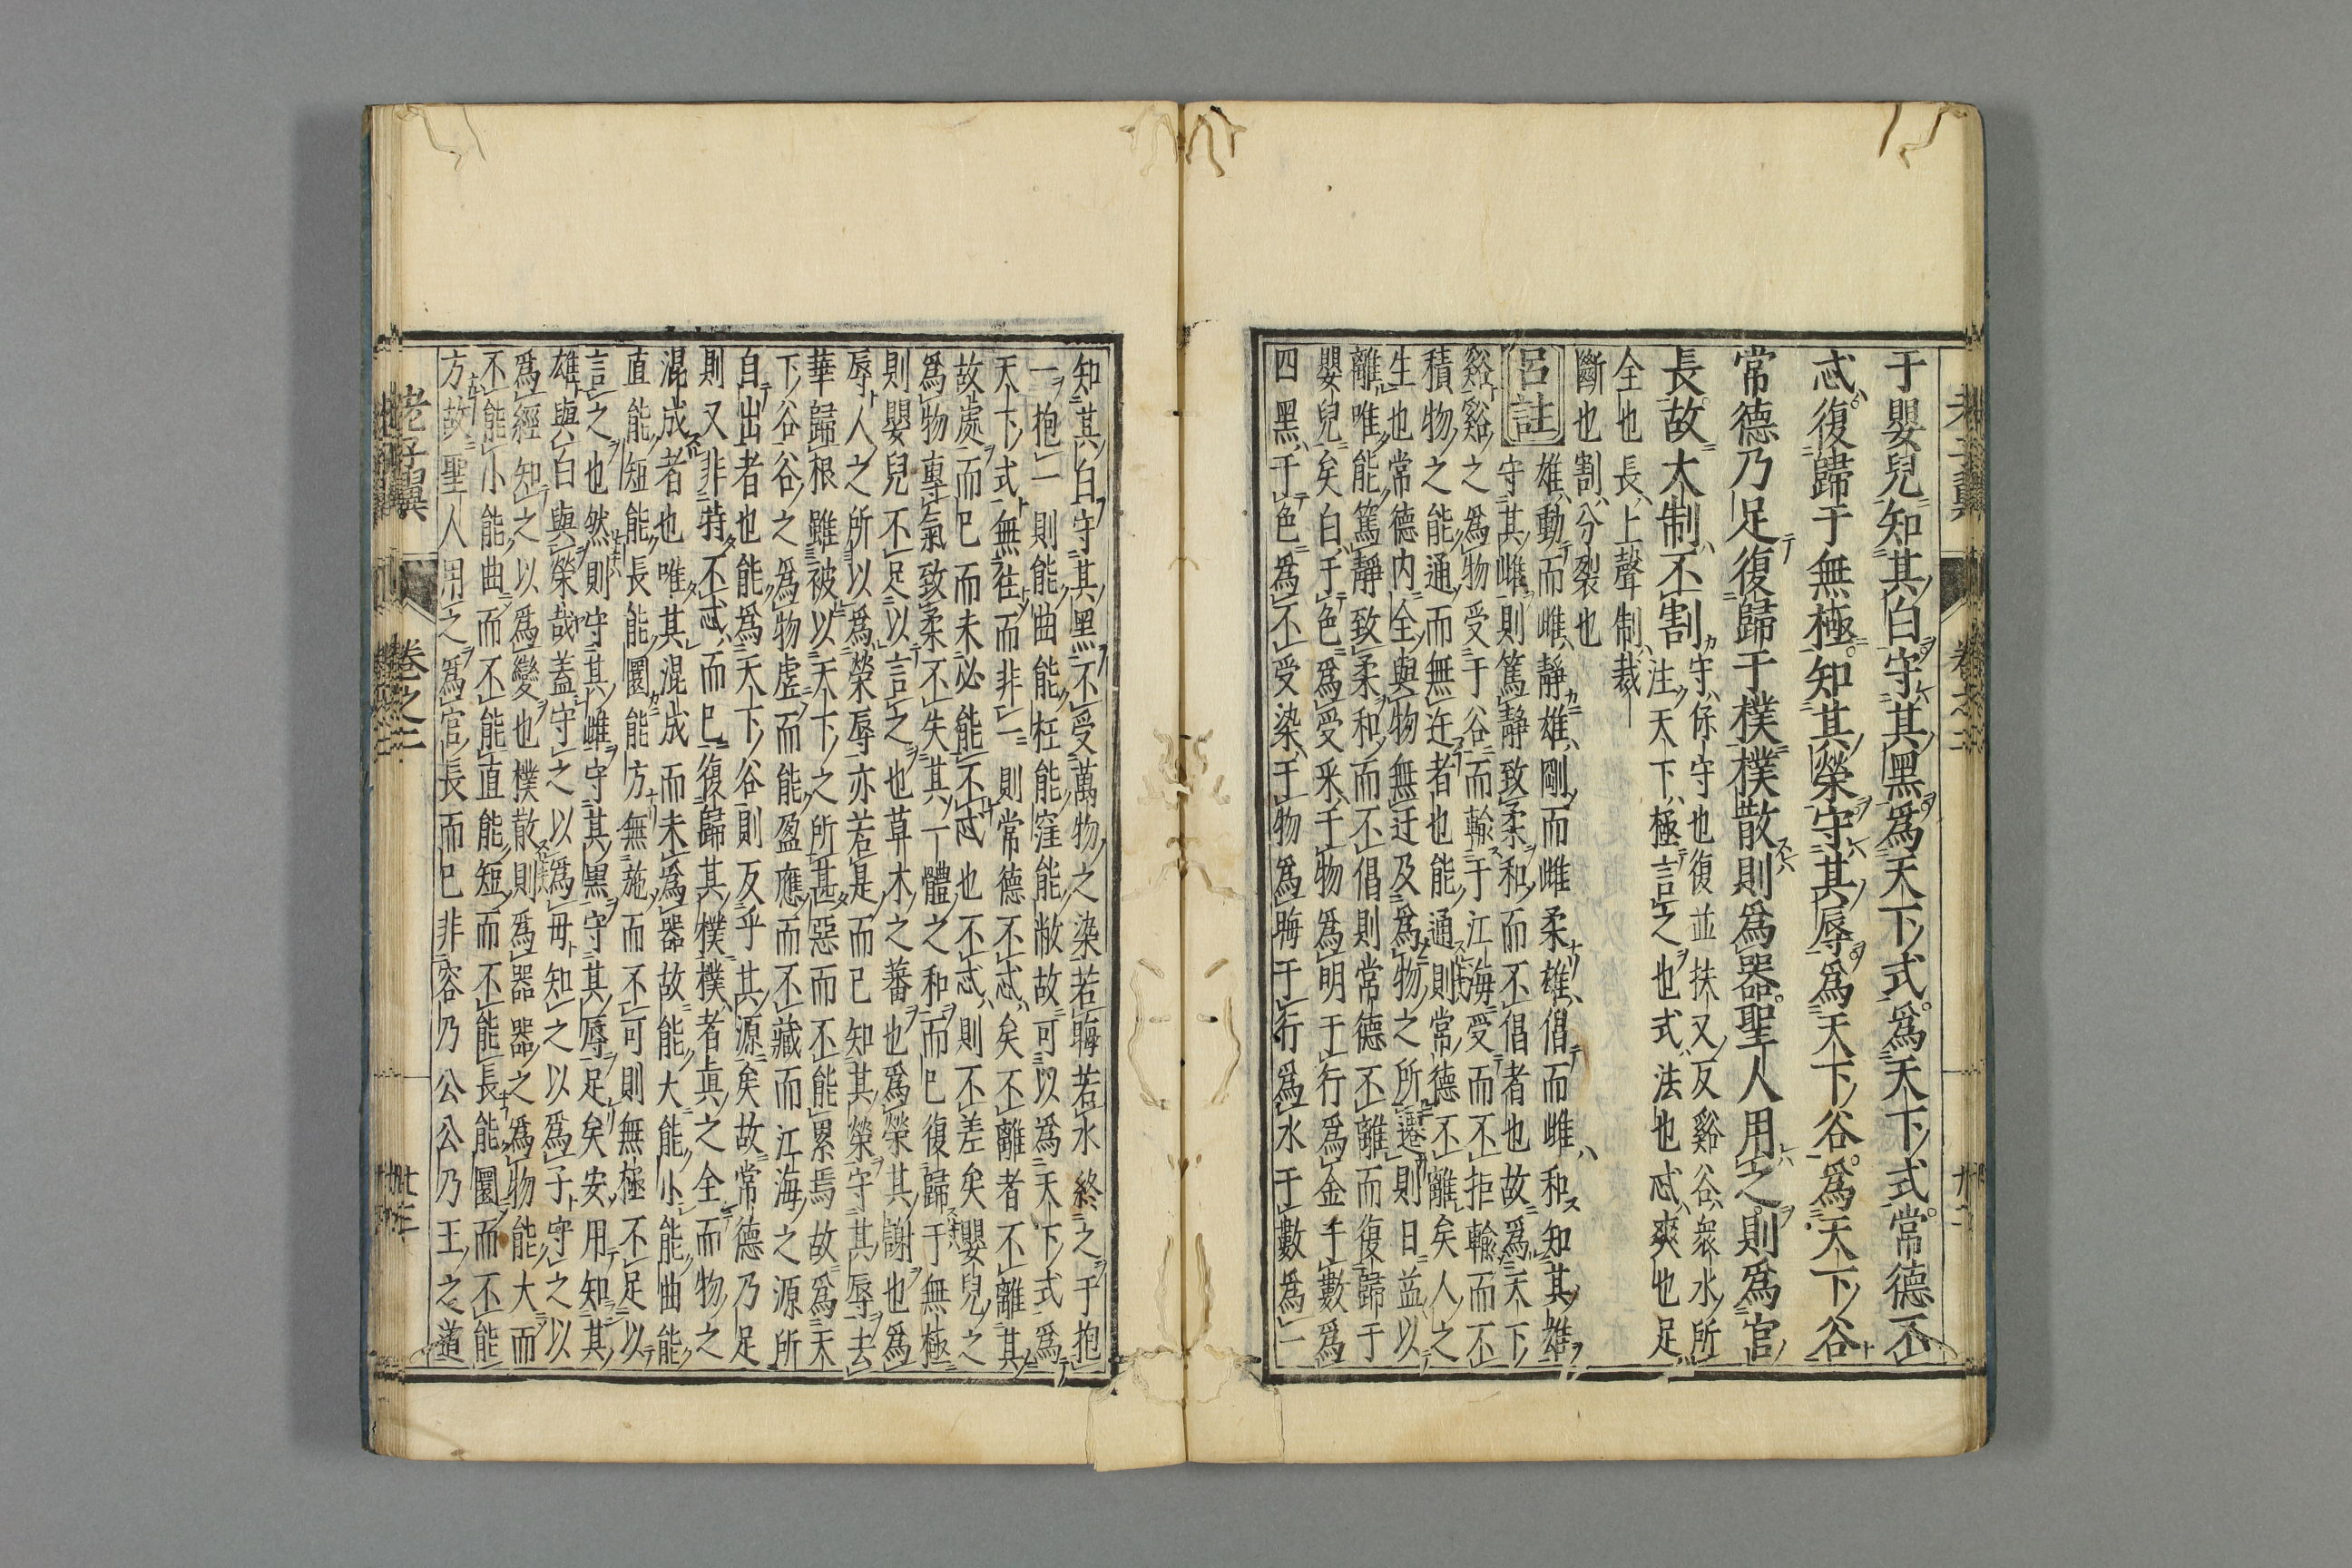 于嬰兒知其白守其黑爲天下式爲天下式常德不
忒復歸于無極知其榮守其辱爲天下谷爲天下谷
常德乃足復歸于樸樸散則爲器聖人用之則爲官
長故大制不割
守係守也復並扶又反谿谷衆水所
注天下極言之也式法也忒爽也足
全也長上聲制裁
斷也割分裂也
呂註
雄動而雌靜雄剛而雌柔雄倡而雌和知其雄
守其雌則篤靜致柔和而不倡者也故爲天下
谿谿之爲物受于谷而輸于江海受而不拒輸而不
積物之能通而無迕者也能通則常德不離矣人之
生也常德內全與物無迕及爲物之所遷則日益以
離唯能篤靜致柔和而不倡則常德不離而復歸于
嬰兒矣白于色爲受采于物爲明于行爲金于數爲
四黑于色爲不受染于物爲晦于行爲水于數爲一
知其白守其黑不受萬物之染若晦若水終之于抱
一抱一則能曲能枉能窪能敝故可以爲天下式爲
天下式無往而非一則常德不忒矣不離者不離其
故處而已而未必能不忒也不忒則不差矣嬰兒之
爲物專氣致柔不失其一體之和而已復歸于無極
則嬰兒不足以言之也草木之蕃也爲榮其謝也爲
辱人之所以爲榮辱亦若是而已知其榮守其辱去
華歸根雖被以天下之所甚惡而不能累焉故爲天
下谷谷之爲物虛而能盈應而不藏而江海之源所
自出者也能爲天下谷則反乎其源矣故常德乃足
則又非特不忒而已復歸其樸樸者真之全而物之
混成者也唯其混成而未爲器故能大能小能曲能
直能短能長能圜能方無施而不可則無極不足以
言之也然則守其雌守其黑守其辱足矣安用知其
雄與白與榮哉蓋守之以爲母知之以爲子守之以
爲經知之以爲變也樸散則爲器器之爲物能大而
不能小能曲而不能直能短而不能長能圜而不能
方故聖人用之爲官長而已非容乃公公乃王之道
老子翼
卷之二
廿三